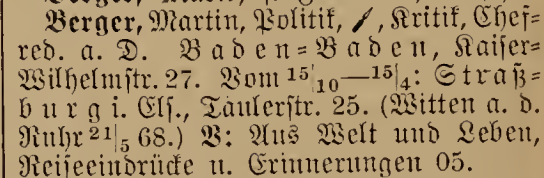 Berger, Martin, Politik, Kritik, Chef=
red. a. D. Baden=Baden, Kaiser=
Wilhelmstr. 27. Vom 15|10—15|4: Straß=
burg i. Els., Taulerstr. 25. (Witten a. d.
Ruhr 21|5 68.) V: Aus Welt und Leben,
Reiseeindrücke u. Erinnerungen 05.